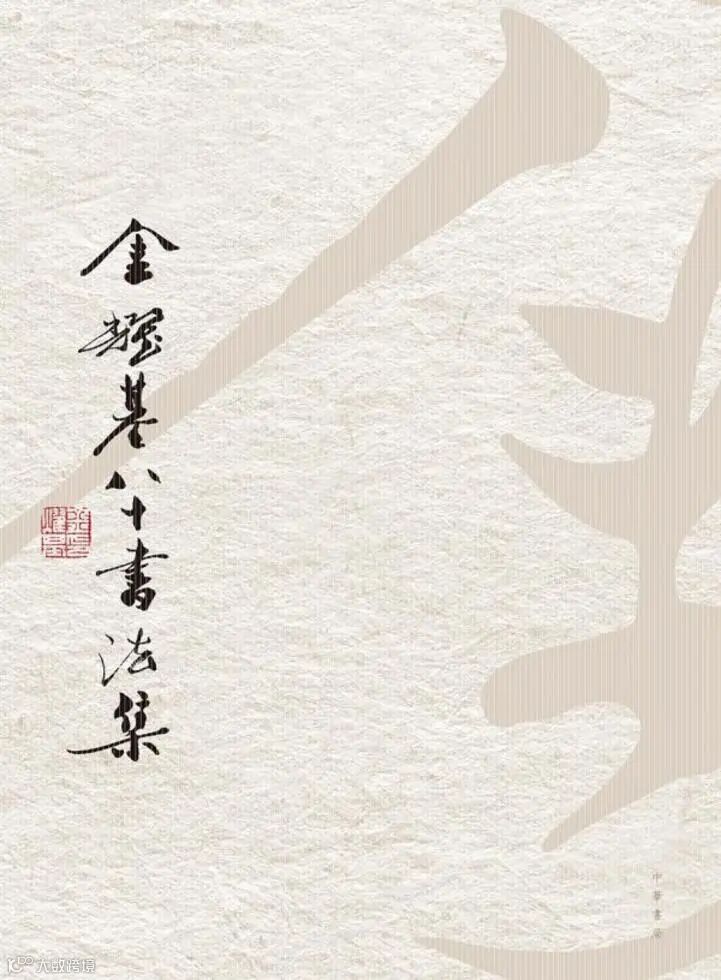 金耀基八十書法集
中華書局
大数跨境